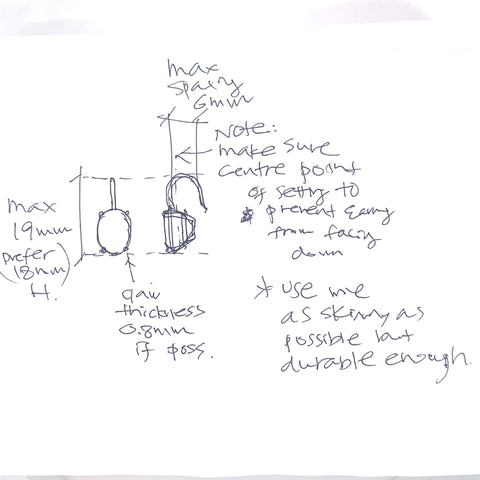 max
spacing
6mm
NOTE:
make sure
centre point
of setting to
prevent earring
from facing
down
max
19mm
(prefer
18mm)
H.
thickness
0.8mm
if poss.
* use wire
as skinny as
possible but
durable enough.